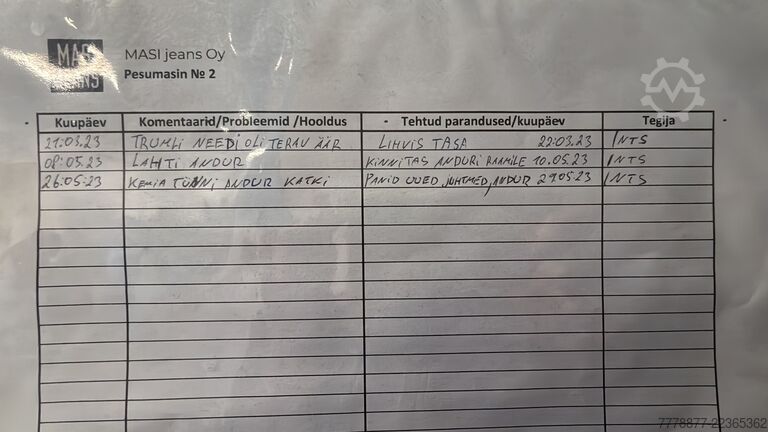 MASI
JEANS
MASI jeans Oy
Pesumasin № 2
Kuupäev Komentaarid/Probleemid /Hooldus - Tehtud parandused/kuupäev Tegija
21.03.23 TRUMLI NEEDI OLI TERAV ÄÄR LIHVIS TASA 22.03.23 INTS
08.05.23 LAHTI ANDUR KINNITAS ANDURI RAAMILE 10.05.23 INTS
26.05.23 KEMIA TÜNNI ANDUR KATKI PANID UUED JUHTMED, ANDUR 29.05.23 INTS
7778877-22365362